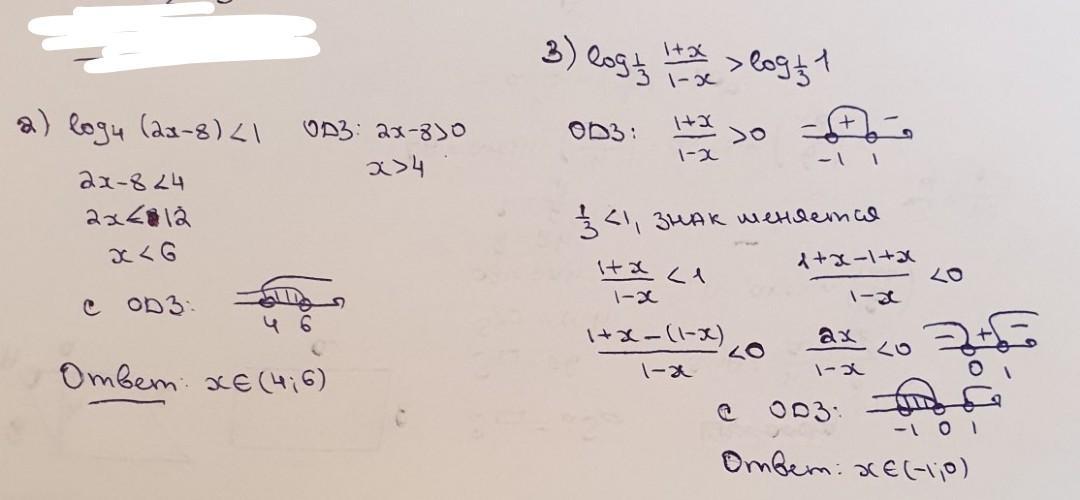 2) log₄ (2x-8) < 1 ОДЗ: 2x-8>0
x>4
2x-8<4
2x<12
x<6
с ОДЗ:
4 6
Ответ: x∈(4;6)
3) log 1/3 (1+x)/(1-x) > log 1/3 1
ОДЗ: (1+x)/(1-x) > 0 - + -
-1 1
1/3 <1, знак меняется
(1+x)/(1-x) < 1 (1+x-1+x)/(1-x) <0
(1+x-(1-x))/(1-x) <0 2x/(1-x) <0 - + -
0 1
с ОДЗ:
-1 0 1
Ответ: x∈(-1;0)